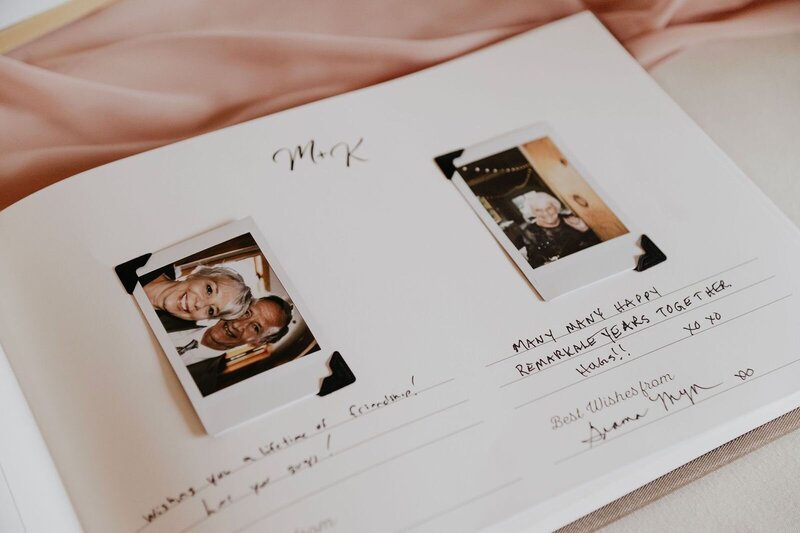 M+K
Wishing you a lifetime of friendship!
you guys!
MANY MANY HAPPY
REMARKALE YEARS TOGETHER
HUGS!! XO XO
Best Wishes from
from